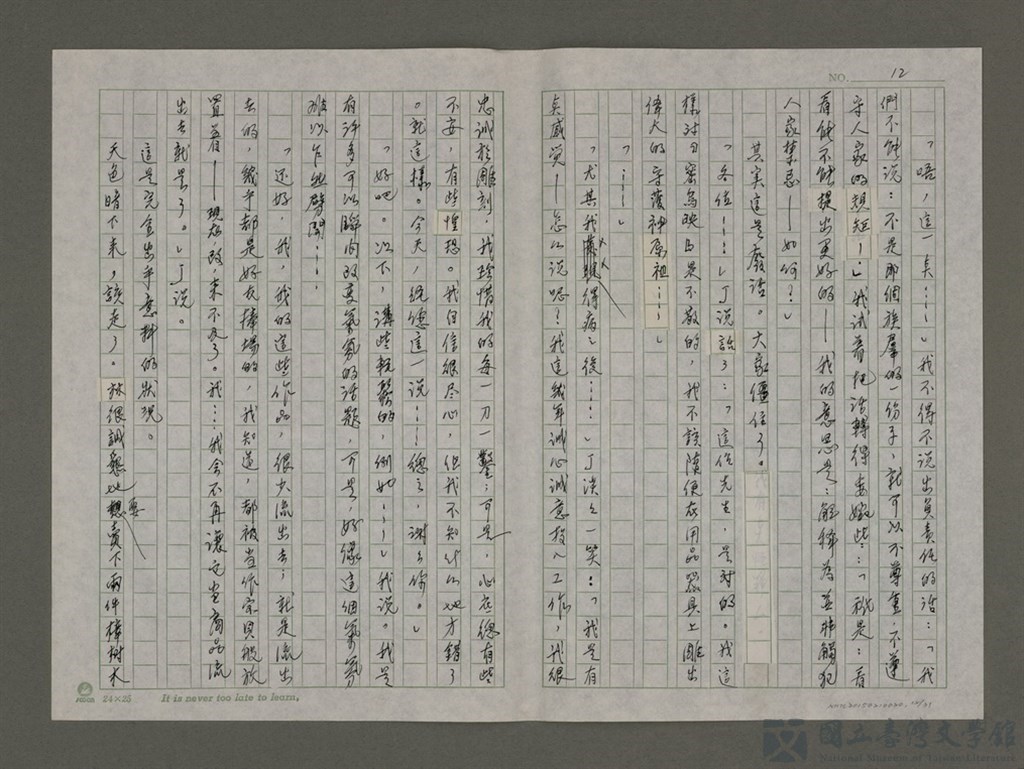 NO. 12
「唔，這一具……」我不得不說出負責任的話：「我
們不能說：不是那個族羣的一份子，就可以不尊重，不遵
守人家的規矩！」我試著把話轉得委婉些……「祇是：看
看能不能提出更好的——我的意思是：解釋為並非觸犯
人家禁忌——如何？」
其實這是廢話。大家僵住了。
「各位……」丁說話了：「這位先生，是對的。我這
樣對
是不敬的，我不該隨便在用品器具上雕出
偉大的守護神原祖……」
「……」
「尤其我得病後……」丁淡淡一笑：「我是有
真感覺——怎么說呢？我這幾年誠心誠意投入工作，我很
忠誠於雕刻，我珍惜我的每一刀一鑿；可是，心底總有些
不安，有些惶恐。我自信很尽心，但我不知什么地方錯了
。就這樣。今天，經您這一說……總之，謝謝你。」
「好吧。以下，講些輕鬆的，例如……」我說。我是
有許多可以瞬間改变氣氛的話題，可是，好像這個氣氛
難以乍然劈開……
「还好，我，我的這些作品，很少流出去；就是流出
去的，幾乎都是好友捧場的，我知道，都被当作宗貝般放
置着——現在改，來不及了。我……我会不再讓它当商品流
出去就是了。」丁說。
這是完全出乎意料的狀況。
天色暗下來，該走了。林很誠懇地要賣下兩件樟樹木
24×25 It is never too late to learn.
國立臺灣文學館
National Museum of Taiwan Literature